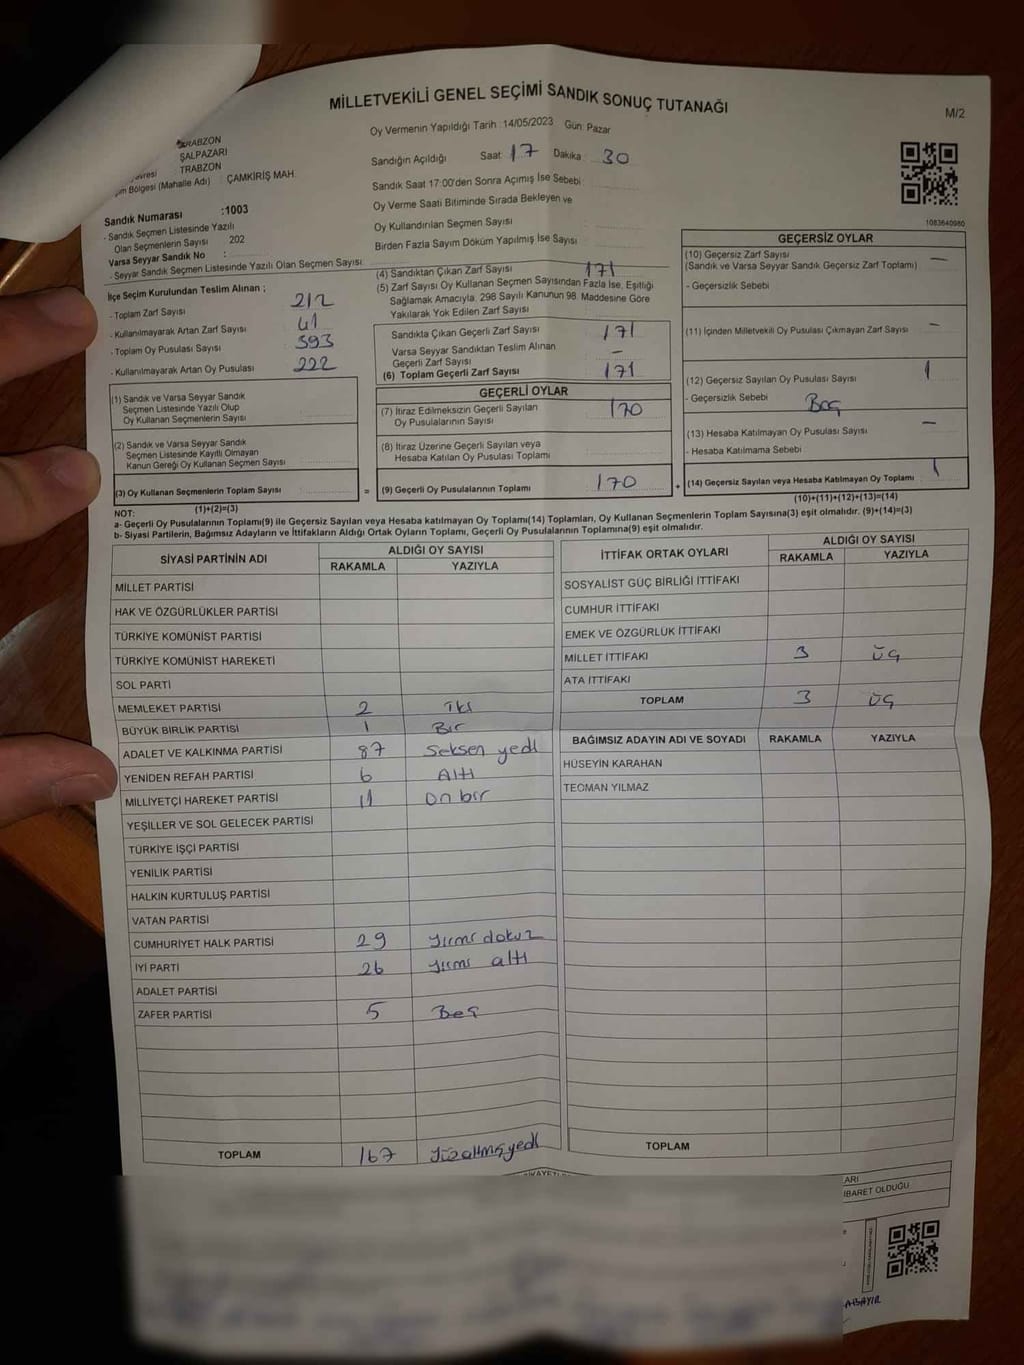 MİLLETVEKİLİ GENEL SEÇİMİ SANDIK SONUÇ TUTANAĞI
M/2
Oy Vermenin Yapıldığı Tarih : 14/05/2023 Gün: Pazar
TRABZON
ŞALPAZARI
TRABZON
Bölgesi (Mahalle Adı) : ÇAMKİRİŞ MAH.
Sandığın Açıldığı Saat 17 Dakika 30
Sandık Saat 17:00'den Sonra Açımış İse Sebebi
Oy Verme Saati Bitiminde Sırada Bekleyen ve
Oy Kullandırılan Seçmen Sayısı
Birden Fazla Sayım Döküm Yapılmış İse Sayısı
Sandık Numarası :1003
- Sandık Seçmen Listesinde Yazılı
Olan Seçmenlerin Sayısı : 202
Varsa Seyyar Sandık No :
- Seyyar Sandık Seçmen Listesinde Yazılı Olan Seçmen Sayısı
İlçe Seçim Kurulundan Teslim Alınan ;
- Toplam Zarf Sayısı 212
- Kullanılmayarak Artan Zarf Sayısı 41
- Toplam Oy Pusulası Sayısı 393
- Kullanılmayarak Artan Oy Pusulası 222
(1) Sandık ve Varsa Seyyar Sandık
Seçmen Listesinde Yazılı Olup
Oy Kullanan Seçmenlerin Sayısı
(2) Sandık ve Varsa Seyyar Sandık
Seçmen Listesinde Kayıtlı Olmayan
Kanun Gereği Oy Kullanan Seçmen Sayısı
(3) Oy Kullanan Seçmenlerin Toplam Sayısı
(1)+(2)=(3)
(4) Sandıktan Çıkan Zarf Sayısı 171
(5) Zarf Sayısı Oy Kullanan Seçmen Sayısından Fazla İse, Eşitliği
Sağlamak Amacıyla, 298 Sayılı Kanunun 98. Maddesine Göre
Yakılarak Yok Edilen Zarf Sayısı
Sandıkta Çıkan Geçerli Zarf Sayısı 171
Varsa Seyyar Sandıktan Teslim Alınan
Geçerli Zarf Sayısı -
(6) Toplam Geçerli Zarf Sayısı 171
GEÇERLİ OYLAR
(7) İtiraz Edilmeksizin Geçerli Sayılan
Oy Pusulalarının Sayısı 170
(8) İtiraz Üzerine Geçerli Sayılan veya
Hesaba Katılan Oy Pusulası Toplamı
= (9) Geçerli Oy Pusulalarının Toplamı 170 +
1083640980
GEÇERSİZ OYLAR
(10) Geçersiz Zarf Sayısı
(Sandık ve Varsa Seyyar Sandık Geçersiz Zarf Toplamı) -
- Geçersizlik Sebebi
(11) İçinden Milletvekili Oy Pusulası Çıkmayan Zarf Sayısı -
(12) Geçersiz Sayılan Oy Pusulası Sayısı 1
- Geçersizlik Sebebi Boş
(13) Hesaba Katılmayan Oy Pusulası Sayısı -
- Hesaba Katılmama Sebebi
(14) Geçersiz Sayılan veya Hesaba Katılmayan Oy Toplamı 1
(10)+(11)+(12)+(13)=(14)
NOT:
a- Geçerli Oy Pusulalarının Toplamı(9) ile Geçersiz Sayılan veya Hesaba katılmayan Oy Toplamı(14) Toplamları, Oy Kullanan Seçmenlerin Toplam Sayısına(3) eşit olmalıdır. (9)+(14)=(3)
b- Siyasi Partilerin, Bağımsız Adayların ve İttifakların Aldığı Ortak Oyların Toplamı, Geçerli Oy Pusulalarının Toplamına(9) eşit olmalıdır.
SİYASİ PARTİNİN ADI ALDIĞI OY SAYISI
RAKAMLA YAZIYLA
MİLLET PARTİSİ
HAK VE ÖZGÜRLÜKLER PARTİSİ
TÜRKİYE KOMÜNİST PARTİSİ
TÜRKİYE KOMÜNİST HAREKETİ
SOL PARTİ
MEMLEKET PARTİSİ 2 iki
BÜYÜK BİRLİK PARTİSİ 1 Bir
ADALET VE KALKINMA PARTİSİ 87 Seksen yedi
YENİDEN REFAH PARTİSİ 6 Altı
MİLLİYETÇİ HAREKET PARTİSİ 11 On bir
YEŞİLLER VE SOL GELECEK PARTİSİ
TÜRKİYE İŞÇİ PARTİSİ
YENİLİK PARTİSİ
HALKIN KURTULUŞ PARTİSİ
VATAN PARTİSİ
CUMHURİYET HALK PARTİSİ 29 yirmi dokuz
İYİ PARTİ 26 yirmi altı
ADALET PARTİSİ
ZAFER PARTİSİ 5 Beş
TOPLAM 167 yüzaltmışyedi
İTTİFAK ORTAK OYLARI ALDIĞI OY SAYISI
RAKAMLA YAZIYLA
SOSYALİST GÜÇ BİRLİĞİ İTTİFAKI
CUMHUR İTTİFAKI
EMEK VE ÖZGÜRLÜK İTTİFAKI
MİLLET İTTİFAKI 3 üç
ATA İTTİFAKI
TOPLAM 3 üç
BAĞIMSIZ ADAYIN ADI VE SOYADI RAKAMLA YAZIYLA
HÜSEYİN KARAHAN
TEOMAN YILMAZ
TOPLAM
IBARET OLDUĞU